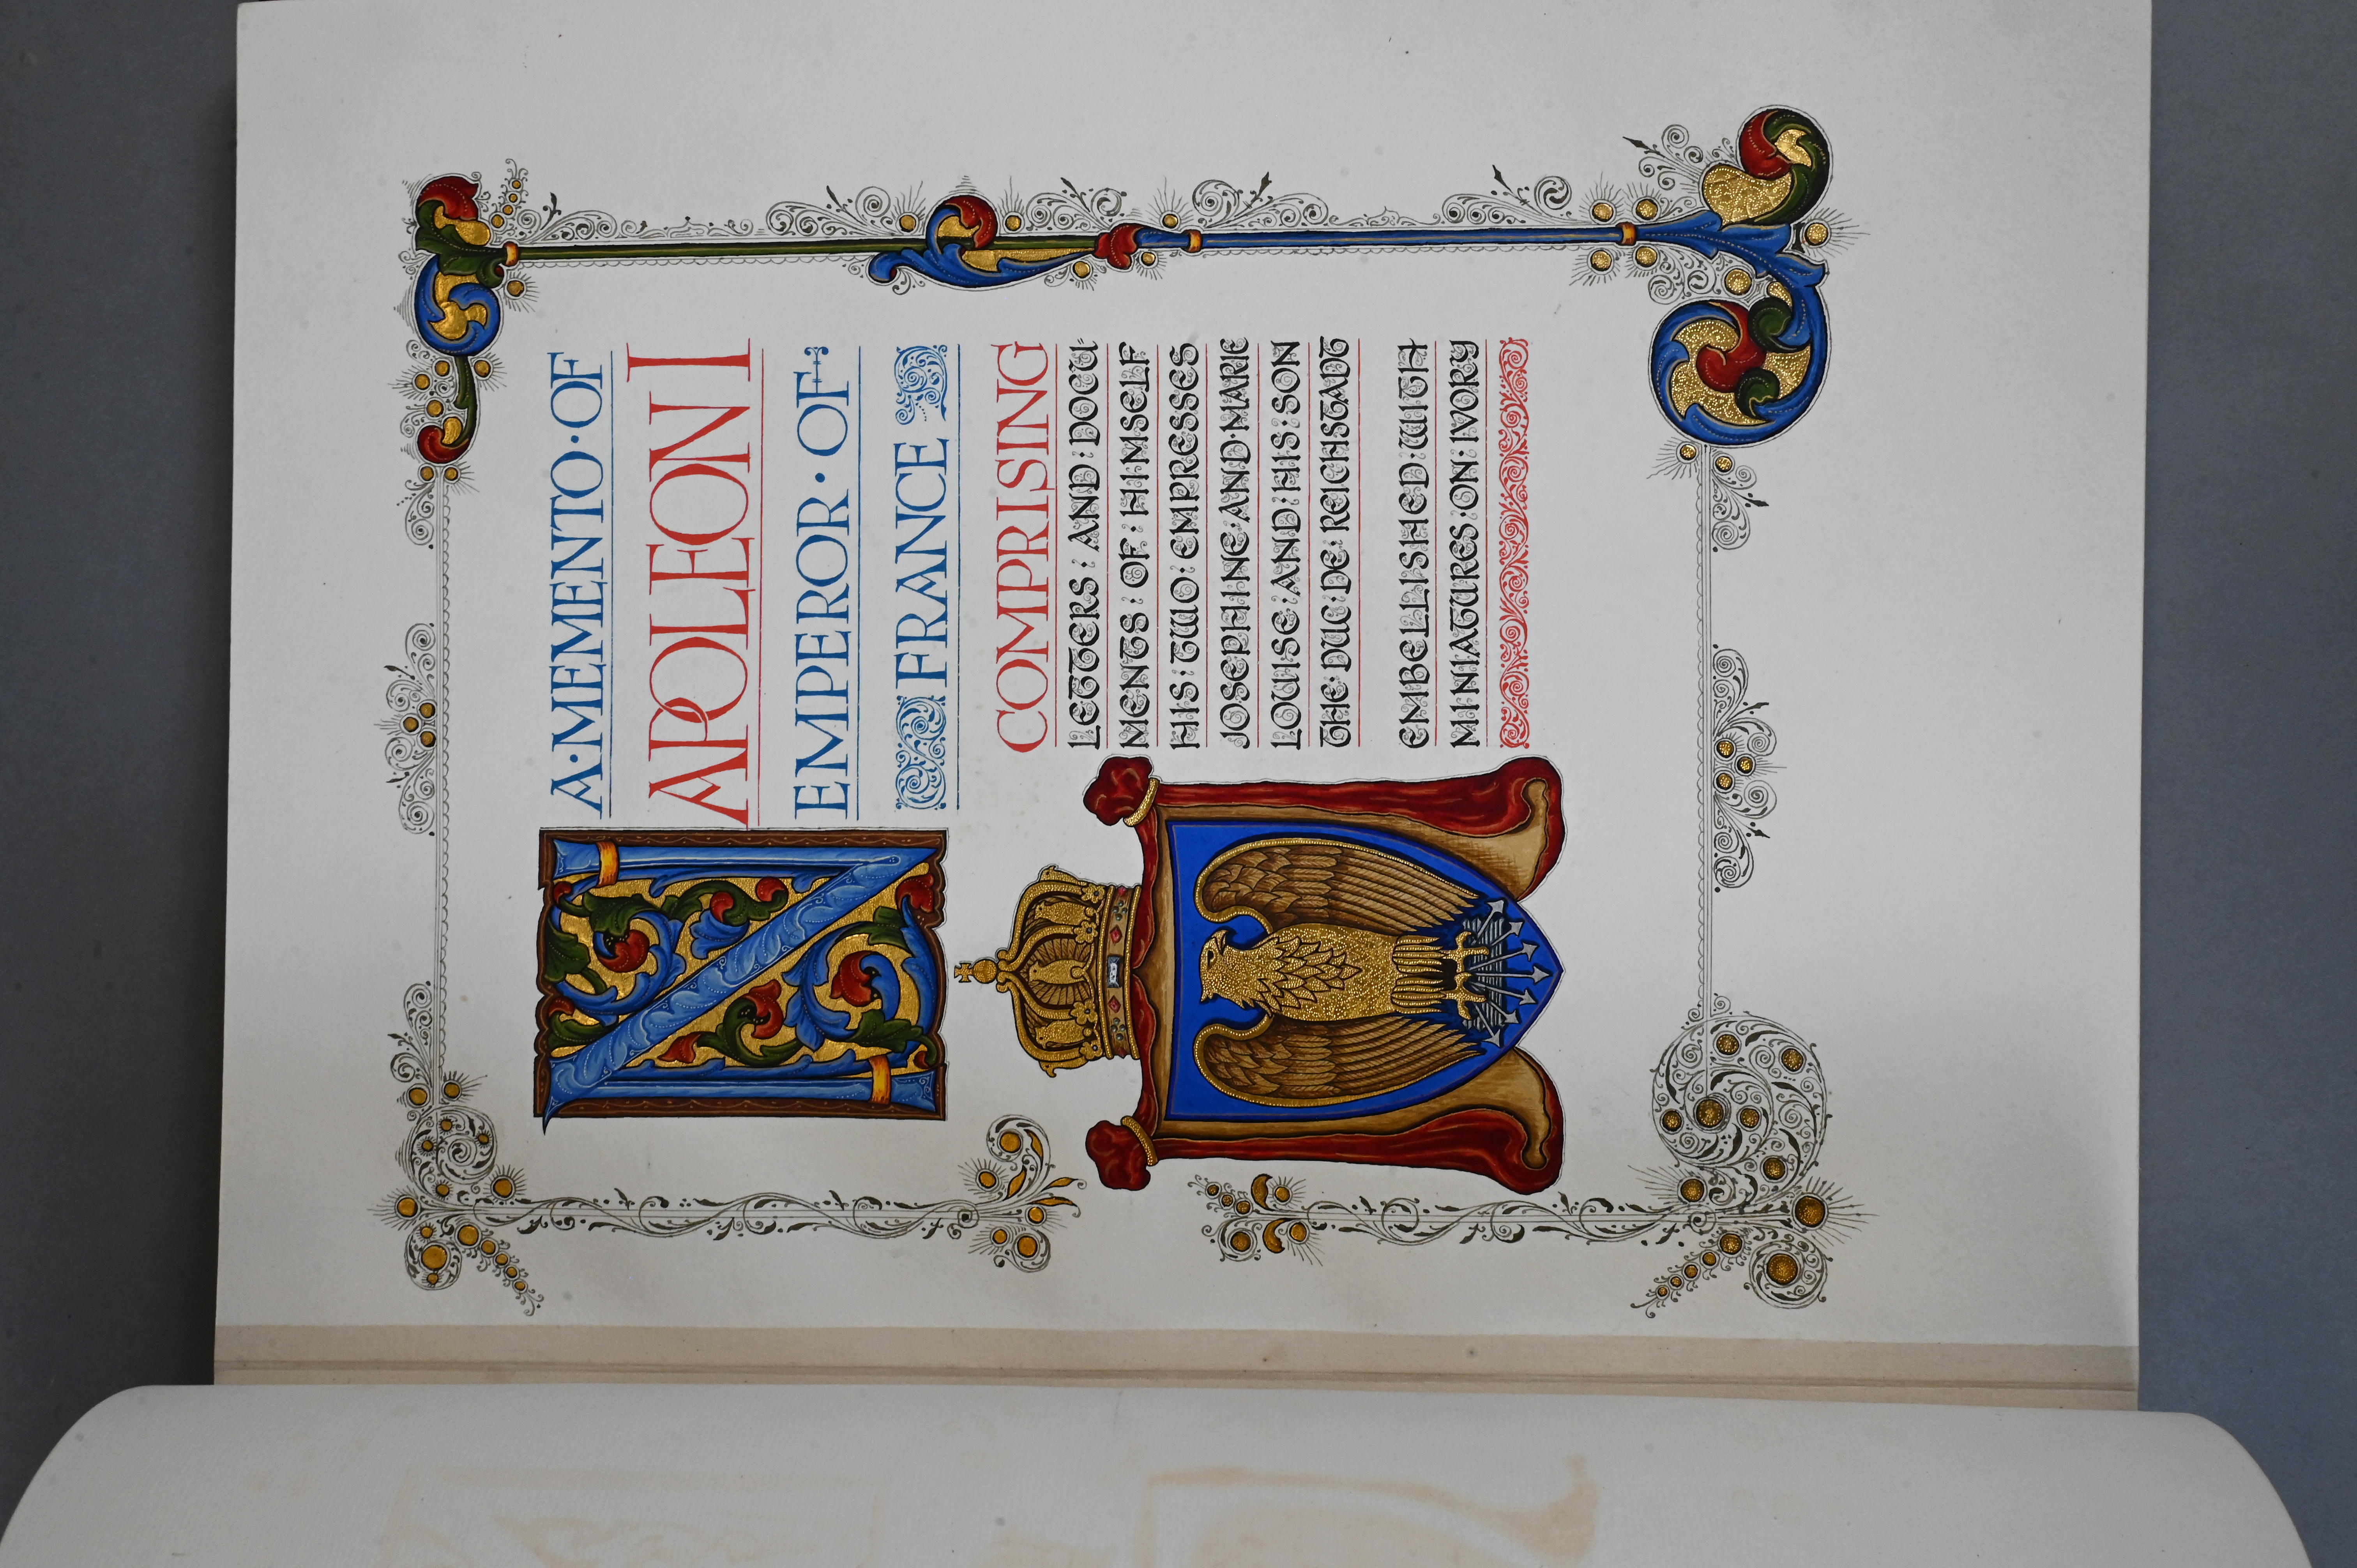 A·MEMENTO·OF
NAPOLEON I
EMPEROR·OF
FRANCE
COMPRISING
LETTERS: AND: DOCU-
MENTS: OF: HIMSELF
HIS: TWO: EMPRESSES
JOSEPHINE: AND: MARIE
LOUISE: AND: HIS: SON
THE: DUC: DE: REICHSTADT
EMBELLISHED: WITH
MINIATURES: ON: IVORY